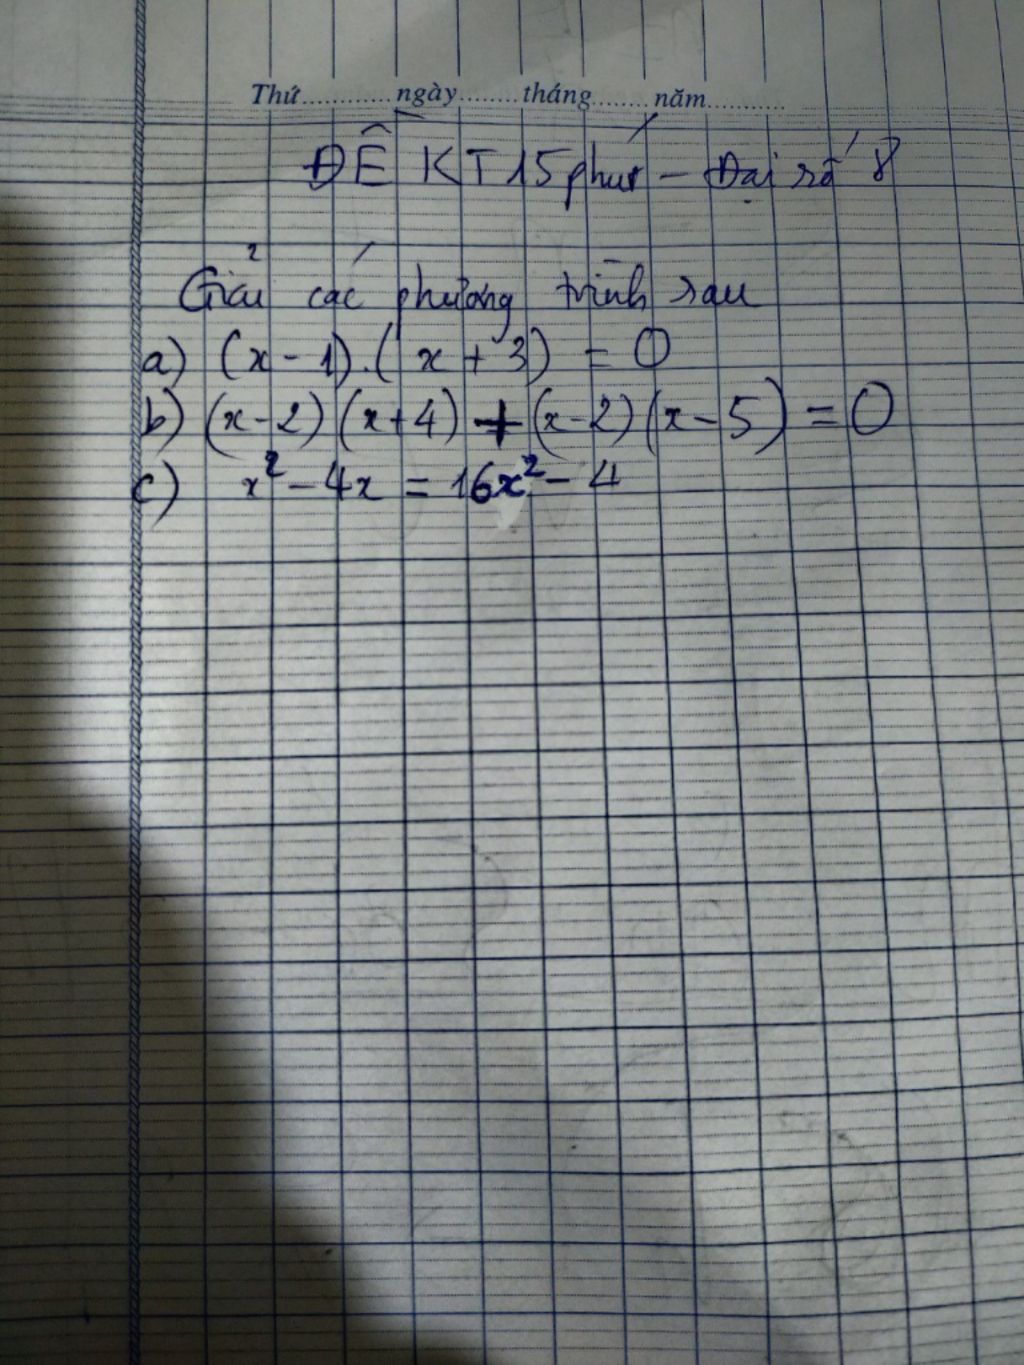 Thứ............ngày........tháng........năm...........
ĐỀ KT 15 phút – Đại số 8
Giải các phương trình sau
a) (x - 1).(x + 3) = 0
b) (x - 2)(x + 4) + (x - 2)(x - 5) = 0
c) x² - 4x = 16x² - 4